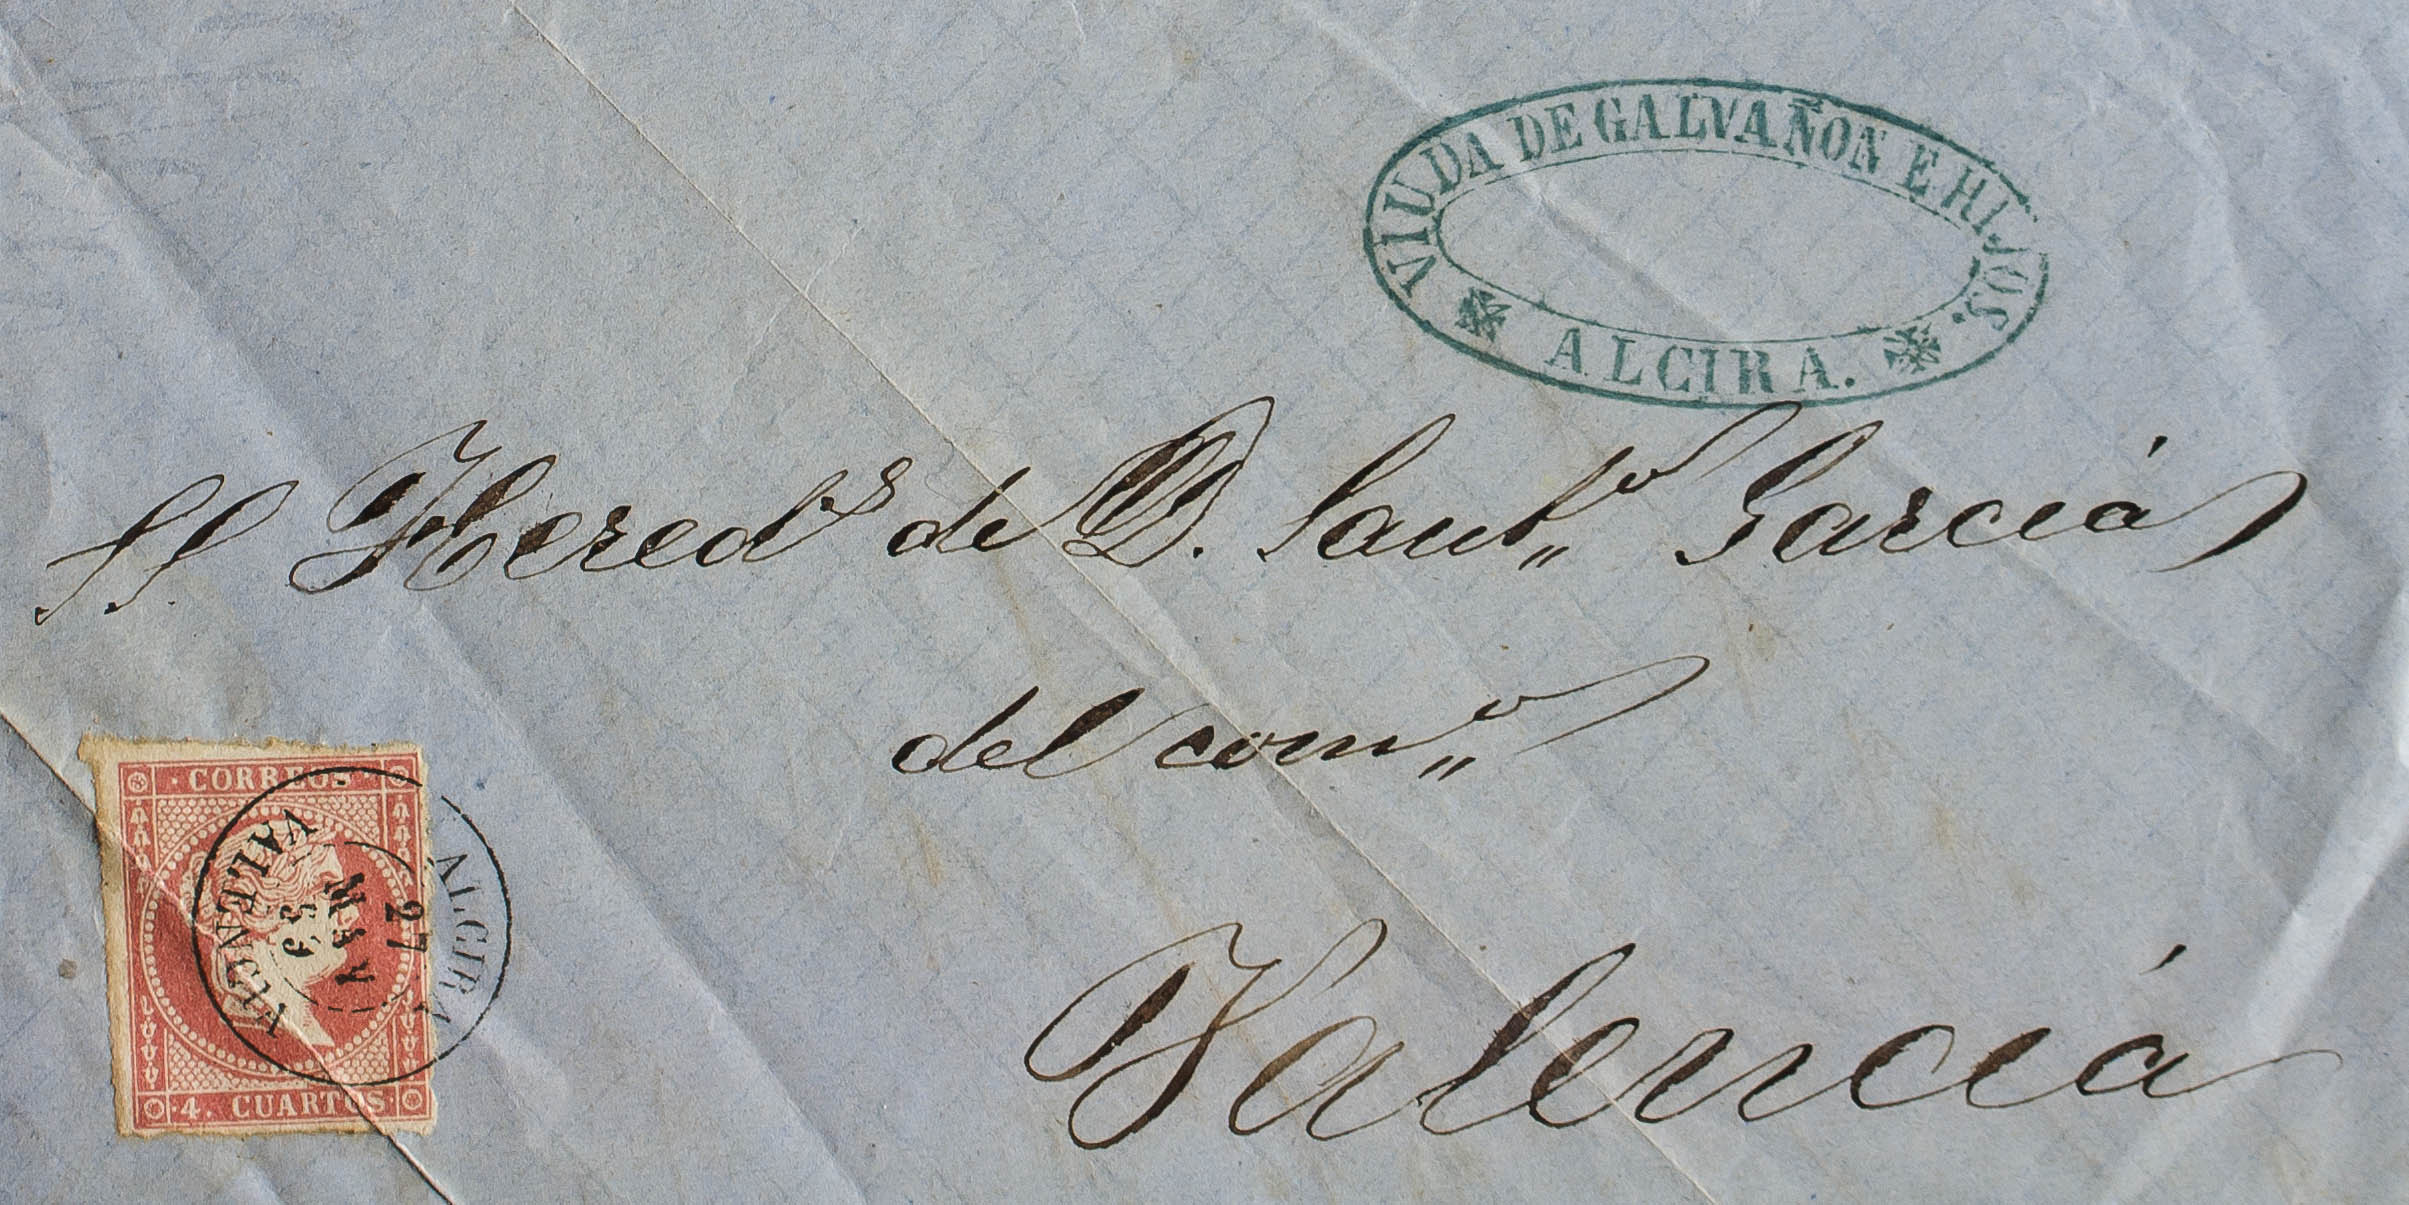 VIUDA DE GALVAÑON E HIJOS.
ALCIRA.
SS. Hered.s de D. Sant.o García
del com.o
Valencia
CORREOS
4. CUARTOS
ALCIRA
27
VALENCIA